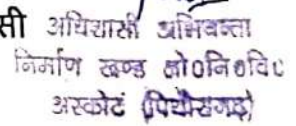 सी अधिशासी अभियन्ता
निर्माण खण्ड लो०नि०वि०
अस्कोट (पिथौरागढ़)